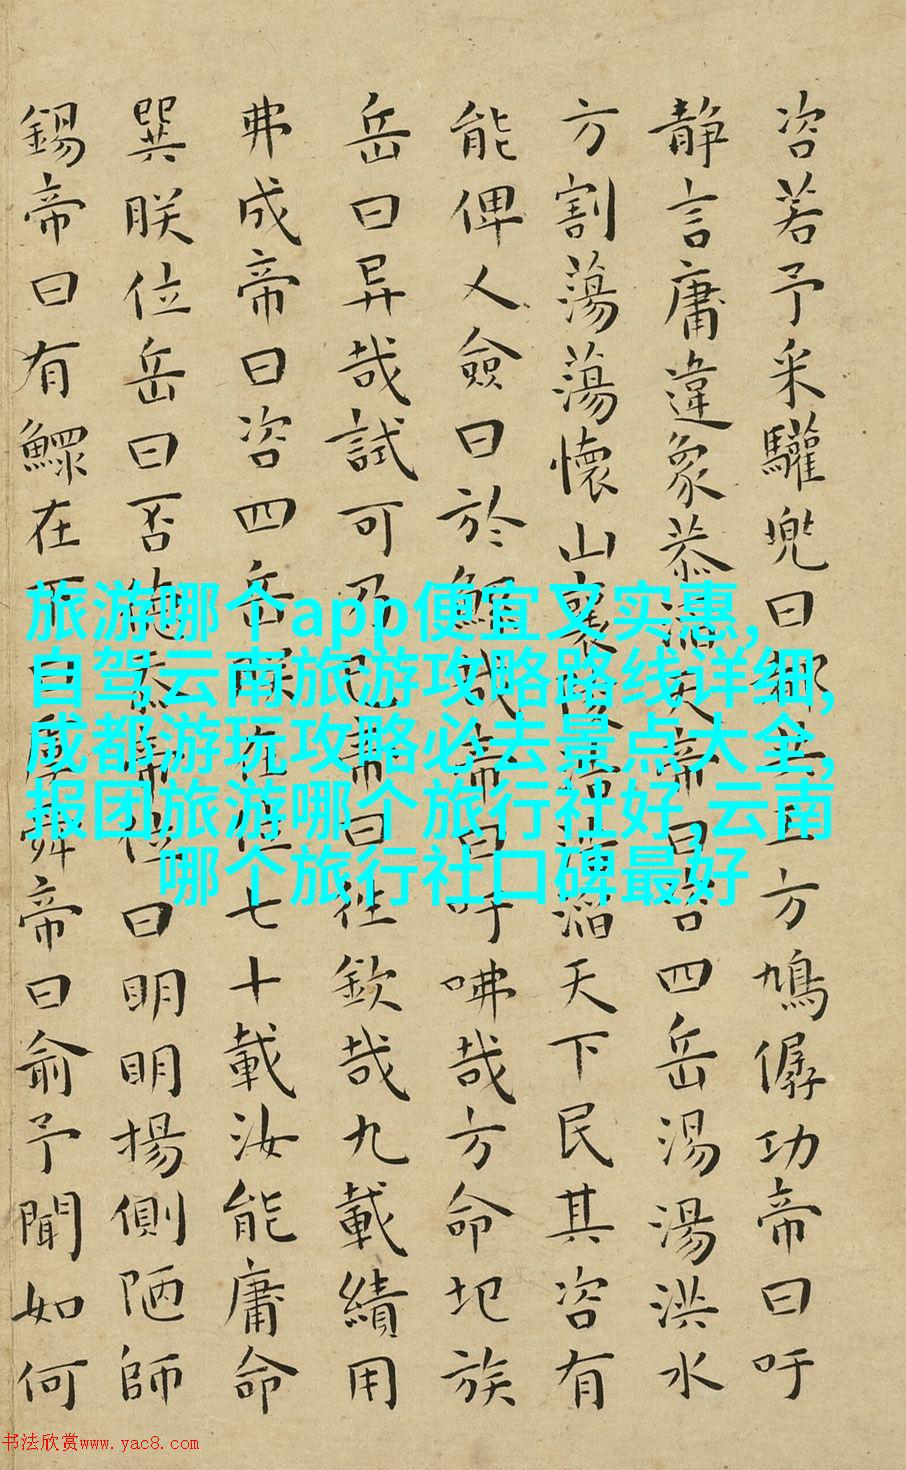 咨若予采驩兜曰都共工方鳩僝功帝曰吁
静言庸違象恭滔天帝曰咨四岳湯湯洪水
方割蕩蕩懷山襄陵浩浩滔天下民其咨有
能俾乂僉曰於鯀哉帝曰吁咈哉方命圮族
岳曰异哉試可乃已帝曰往欽哉九載績用
弗成帝曰咨四岳朕在位七十載汝能庸命
巽朕位岳曰否德忝帝位曰明明揚側陋師
錫帝曰有鰥在下曰虞舜帝曰俞予聞如何
旅游哪个app便宜又实惠,
自驾云南旅游攻略路线详细,
成都游玩攻略必去景点大全,
报团旅游哪个旅行社好,云南
哪个旅行社口碑最好
书法欣赏www.yac8.com